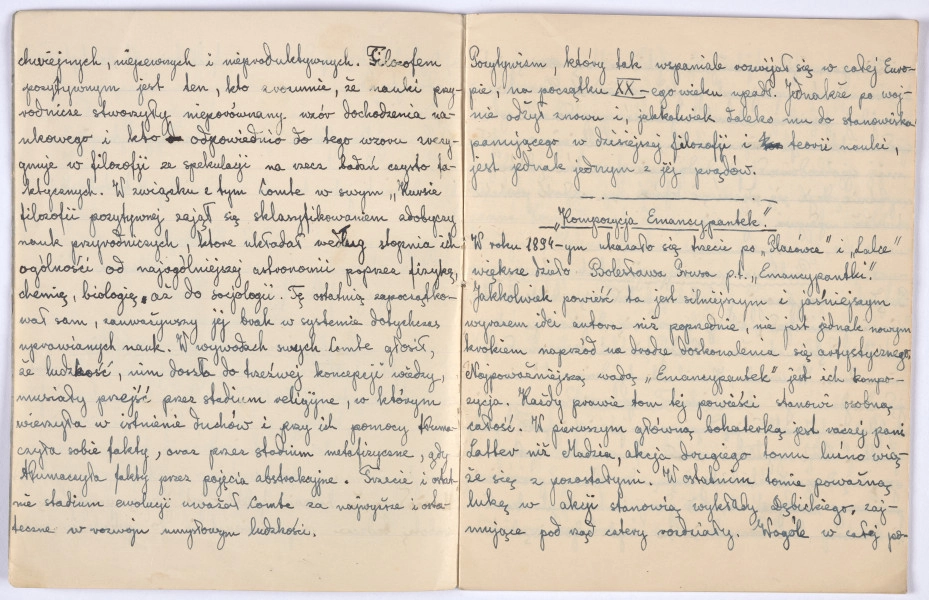 chwiejnych, niepewnych i nieproduktywnych. Filozofem
pozytywnym jest ten, kto zrozumie, że nauki przy-
rodnicze stworzyły nieporównany wzór dochodzenia na-
ukowego i kto odpowiednio do tego wzoru zrezy-
gnuje w filozofji ze spekulacji na rzecz badań czysto fa-
ktycznych. W związku z tym Comte w swym „Kursie
filozofii pozytywnej zajął się sklasyfikowaniem zdobyczy
nauk przyrodniczych, które układał według stopnia ich
ogólności od najogólniejszej astronomii poprzez fizykę,
chemię, biologię, aż do socjologii. Tę ostatnią zapoczątko-
wał sam, zauważywszy jej brak w systemie dotychczas
uprawianych nauk. W wywodach swych Comte głosił,
że ludzkość, nim doszła do trzeźwej koncepcji wiedzy,
musiały przejść przez stadium religijne, w którym
wierzyła w istnienie duchów i przy ich pomocy tłuma-
czyła sobie fakty, oraz przez stadium metafizyczne, gdy
tłumaczyła fakty przez pojęcia abstrakcyjne. Trzecie i ostat-
nie stadium ewolucji uważał Comte za najwyższe i osta-
teczne w rozwoju umysłowym ludzkości.
Pozytywizm, który tak wspaniale rozwijał się w całej Euro-
pie, na początku XX-ego wieku upadł. Jednakże po woj-
nie odżył znowu i, jakkolwiek daleko mu do stanowiska
panującego w dzisiejszej filozofji i teorii nauki,
jest jednak jednym z jej prądów.
„Kompozycja Emancypantek".
W roku 1894-ym ukazało się trzecie po „Placówce" i „Lalce"
większe dzieło Bolesława Prusa p.t. „Emancypantki".
Jakkolwiek powieść ta jest silniejszym i jaśniejszym
wyrazem idei autora niż poprzednie, nie jest jednak nowym
krokiem naprzód na drodze doskonalenia się artystycznego.
Najpoważniejszą wadą „Emancypantek" jest ich kompo-
zycja. Każdy prawie tom tej powieści stanowi osobną
całość. W pierwszym główną bohaterką jest raczej pani
Latter niż Madzia, akcja drugiego tomu luźno wią-
że się z pozostałymi. W ostatnim tomie poważną
lukę w akcji stanowią wykłady Dębickiego, zaj-
mujące pod rząd cztery rozdziały. Wogóle w całej po-